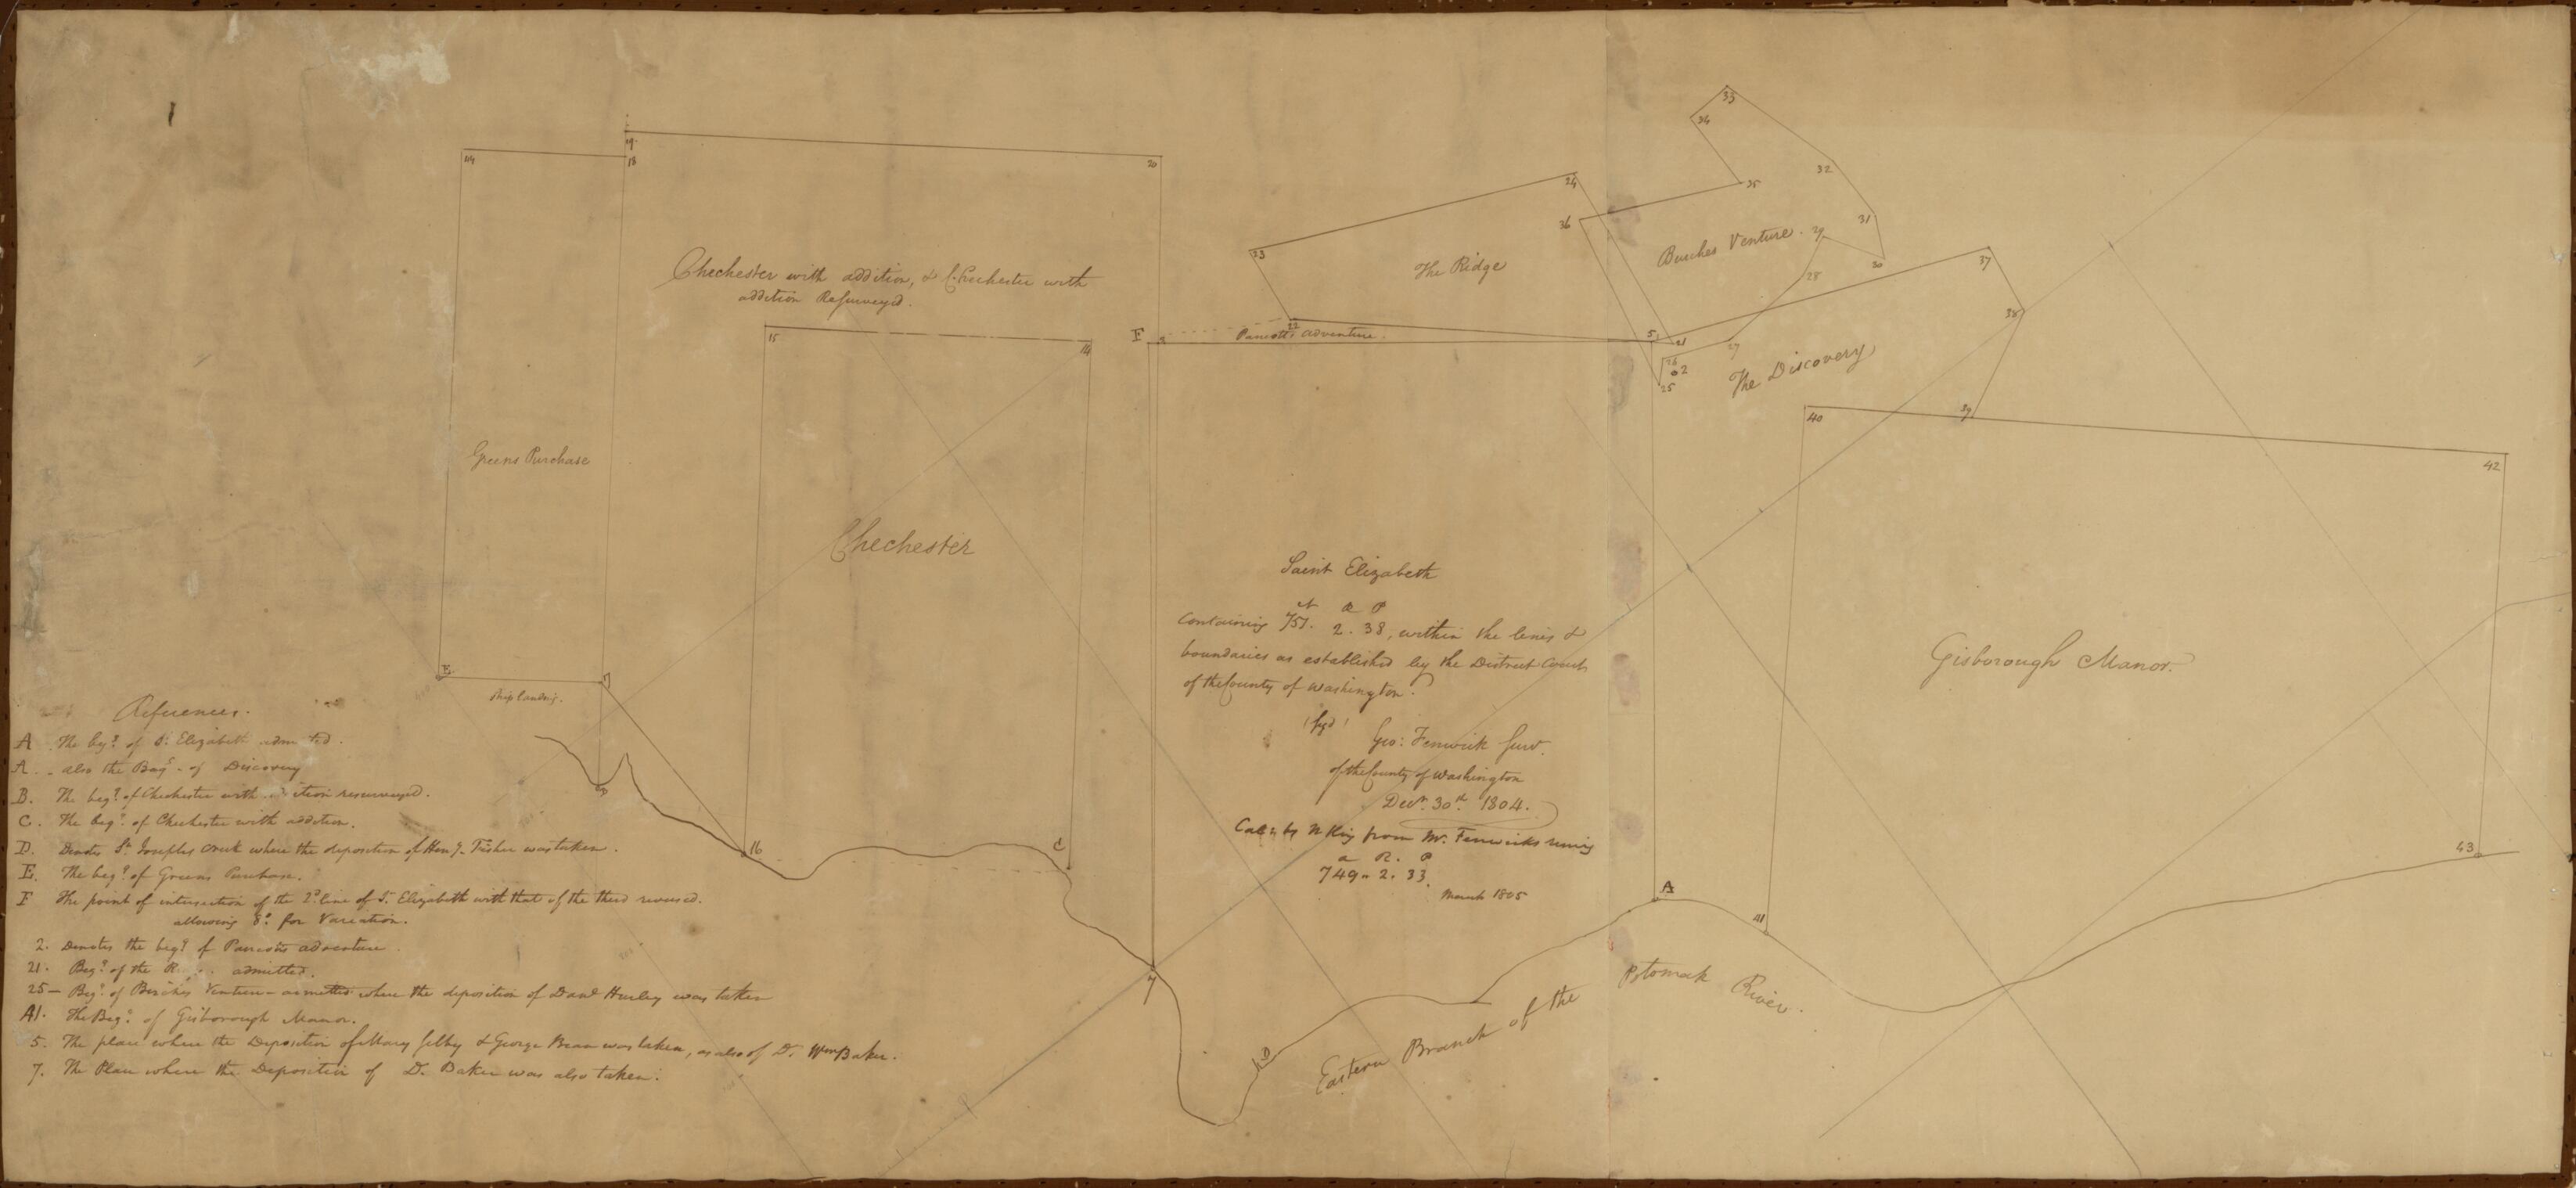 33
34
19
44
18
20
32
35
24
31
36
29
Burches Venture.
30
37
23
The Ridge
28
Chechester with addition, & Chechester with
addition Resurveyed.
38
22
15
14
F
3
Parrotts adventure.
5
21
27
26
2
25
The Discovery
40
39
42
Greens Purchase
Chechester
Saint Elizabeth
A R P
Containing 751. 2. 38, within the lines &
boundaries as established by the District Court
of the County of Washington.
(sgd)
Geo: Fenwick Surv.
of the County of Washington
Decr. 30th 1804.
Cal'd by N King from Mr. Fenwicks runing
a R. P
749 - 2. 33.
March 1805
Gisborough Manor.
E
17
Ship landing.
16
C
43
A
41
7
D
Eastern Branch of the Potomak River.
References.
A The begg. of St. Elizabeth admitted.
A. also the Begg. of Discovery
B. The begg. of Chechester with addition resurveyed.
C. The begg. of Chechester with addition.
D. Denotes St. Josephs Creek where the deposition of Heny. Tisher was taken.
E. The begg. of Greens Purchase.
F The point of intersection of the 2d line of St. Elizabeth with that of the third reversed.
allowing 8° for Variation.
2. Denotes the begg. of Parrotts adventure.
21. Begg. of the admitted.
25 - Begg. of Birches Venture admitted where the deposition of Danl Hurley was taken
41. The Begg. of Gisborough Manor.
5. The place where the Deposition of Mary Selby & George Bean was taken, as also of D. Wm Baker.
7. The Place where the Deposition of D. Baker was also taken.